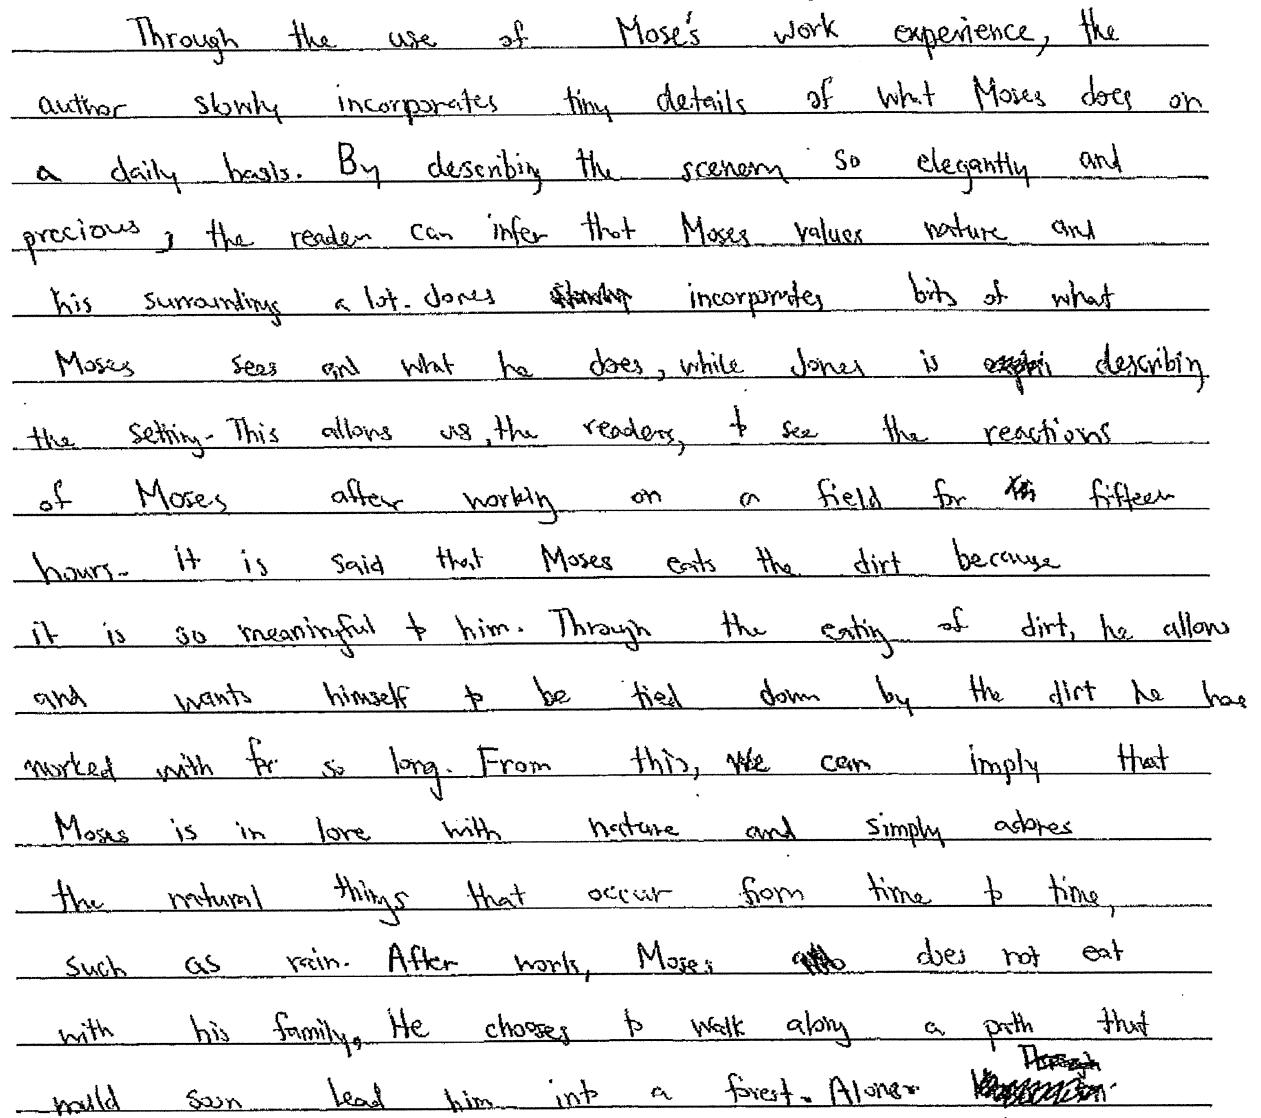 Through the use of Mose's work experience, the
author slowly incorporates tiny details of what Moses does on
a daily basis. By describing the scenery so elegantly and
precious, the reader can infer that Moses values nature and
his surroundings a lot. Jones incorporates bits of what
Moses sees and what he does, while Jones is describing
the setting. This allows us, the readers, to see the reactions
of Moses after working on a field for fifteen
hours. it is said that Moses eats the dirt because
it is so meaningful to him. Through the eating of dirt, he allows
and wants himself to be tied down by the dirt he has
worked with for so long. From this, we can imply that
Moses is in love with nature and simply adores
the natural things that occur from time to time,
such as rain. After work, Moses does not eat
with his family. He chooses to walk along a path that
would soon lead him into a forest. Alone.